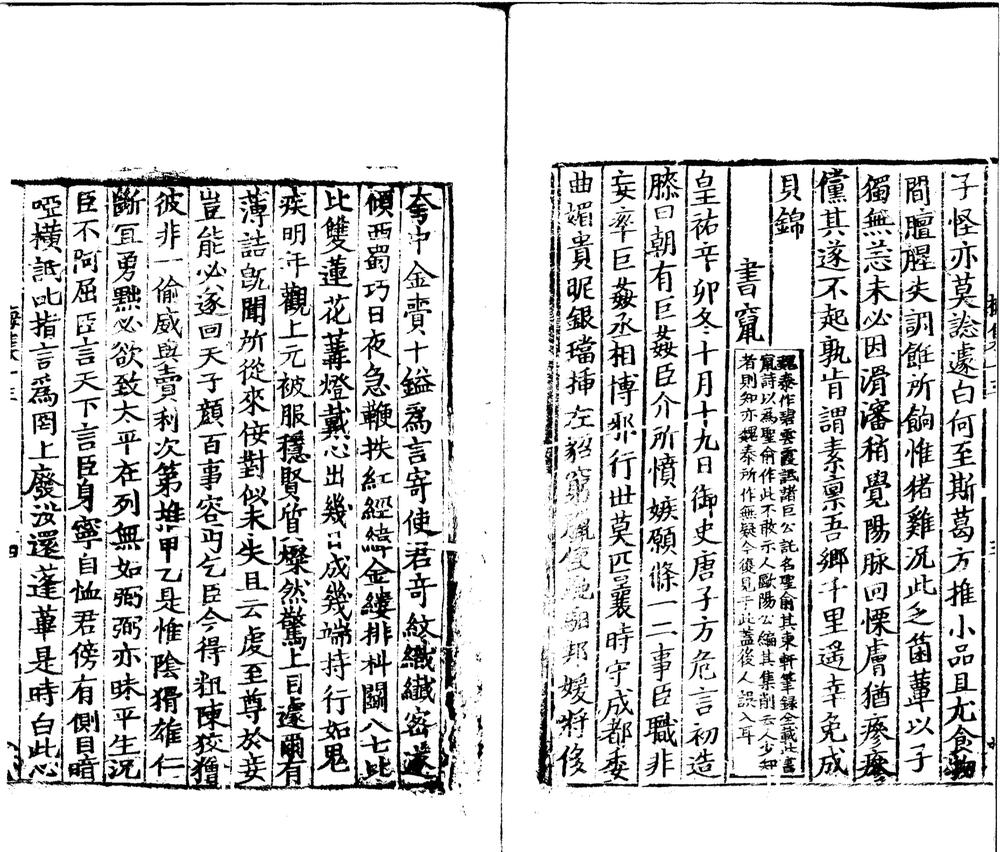 子怪亦莫諗遽白何至斯葛方推小品且尤食物
間膻腥失調飪所餉惟猪雞況此乏菌蕈以子
獨無恙未必因滑瀋稍覺陽脉回慄膚猶瘮瘮
儻其遂不起孰肯謂素稟吾鄉千里遥幸免成
貝錦
書竄
魏泰作碧雲霞詆諸巨公託名聖俞其東軒筆録全載此書
竄詩以爲聖俞作此不敢示人歐陽公編其集削去人少知
者則知亦魏泰所作無疑今復見于此蓋後人誤入耳
皇祐辛卯冬十月十九日御史唐子方危言初造
膝曰朝有巨姦臣介所憤嫉願條一二事臣職非
妄率巨姦丞相博邪行世莫匹曩時守成都委
曲媚貴昵銀璫揷左貂窮邦媛將侈
夸中金賚十鎰爲言寄使君奇紋織纎密遂
傾西蜀巧日夜急鞭抶紅經緯金縷排枓鬭八七比
比雙蓮花篝燈戴心出幾日成幾端持行如鬼
疾明年觀上元被服穩賢質燦然驚上目遽爾有
薄詰旣聞所從來佞對似未失且云虔至尊於妾
豈能必遂回天子顔百事容丐乞臣今得粗陳狡獪
彼非一偷威與賣利次第推甲乙是惟陰猾雄仁
斷宜勇黜必欲致太平在列無如弼弼亦昧平生況
臣不阿屈臣言天下言臣身寧自恤君傍有側目暗
啞橫詆叱指言爲罔上廢汝還蓬蓽是時白此心